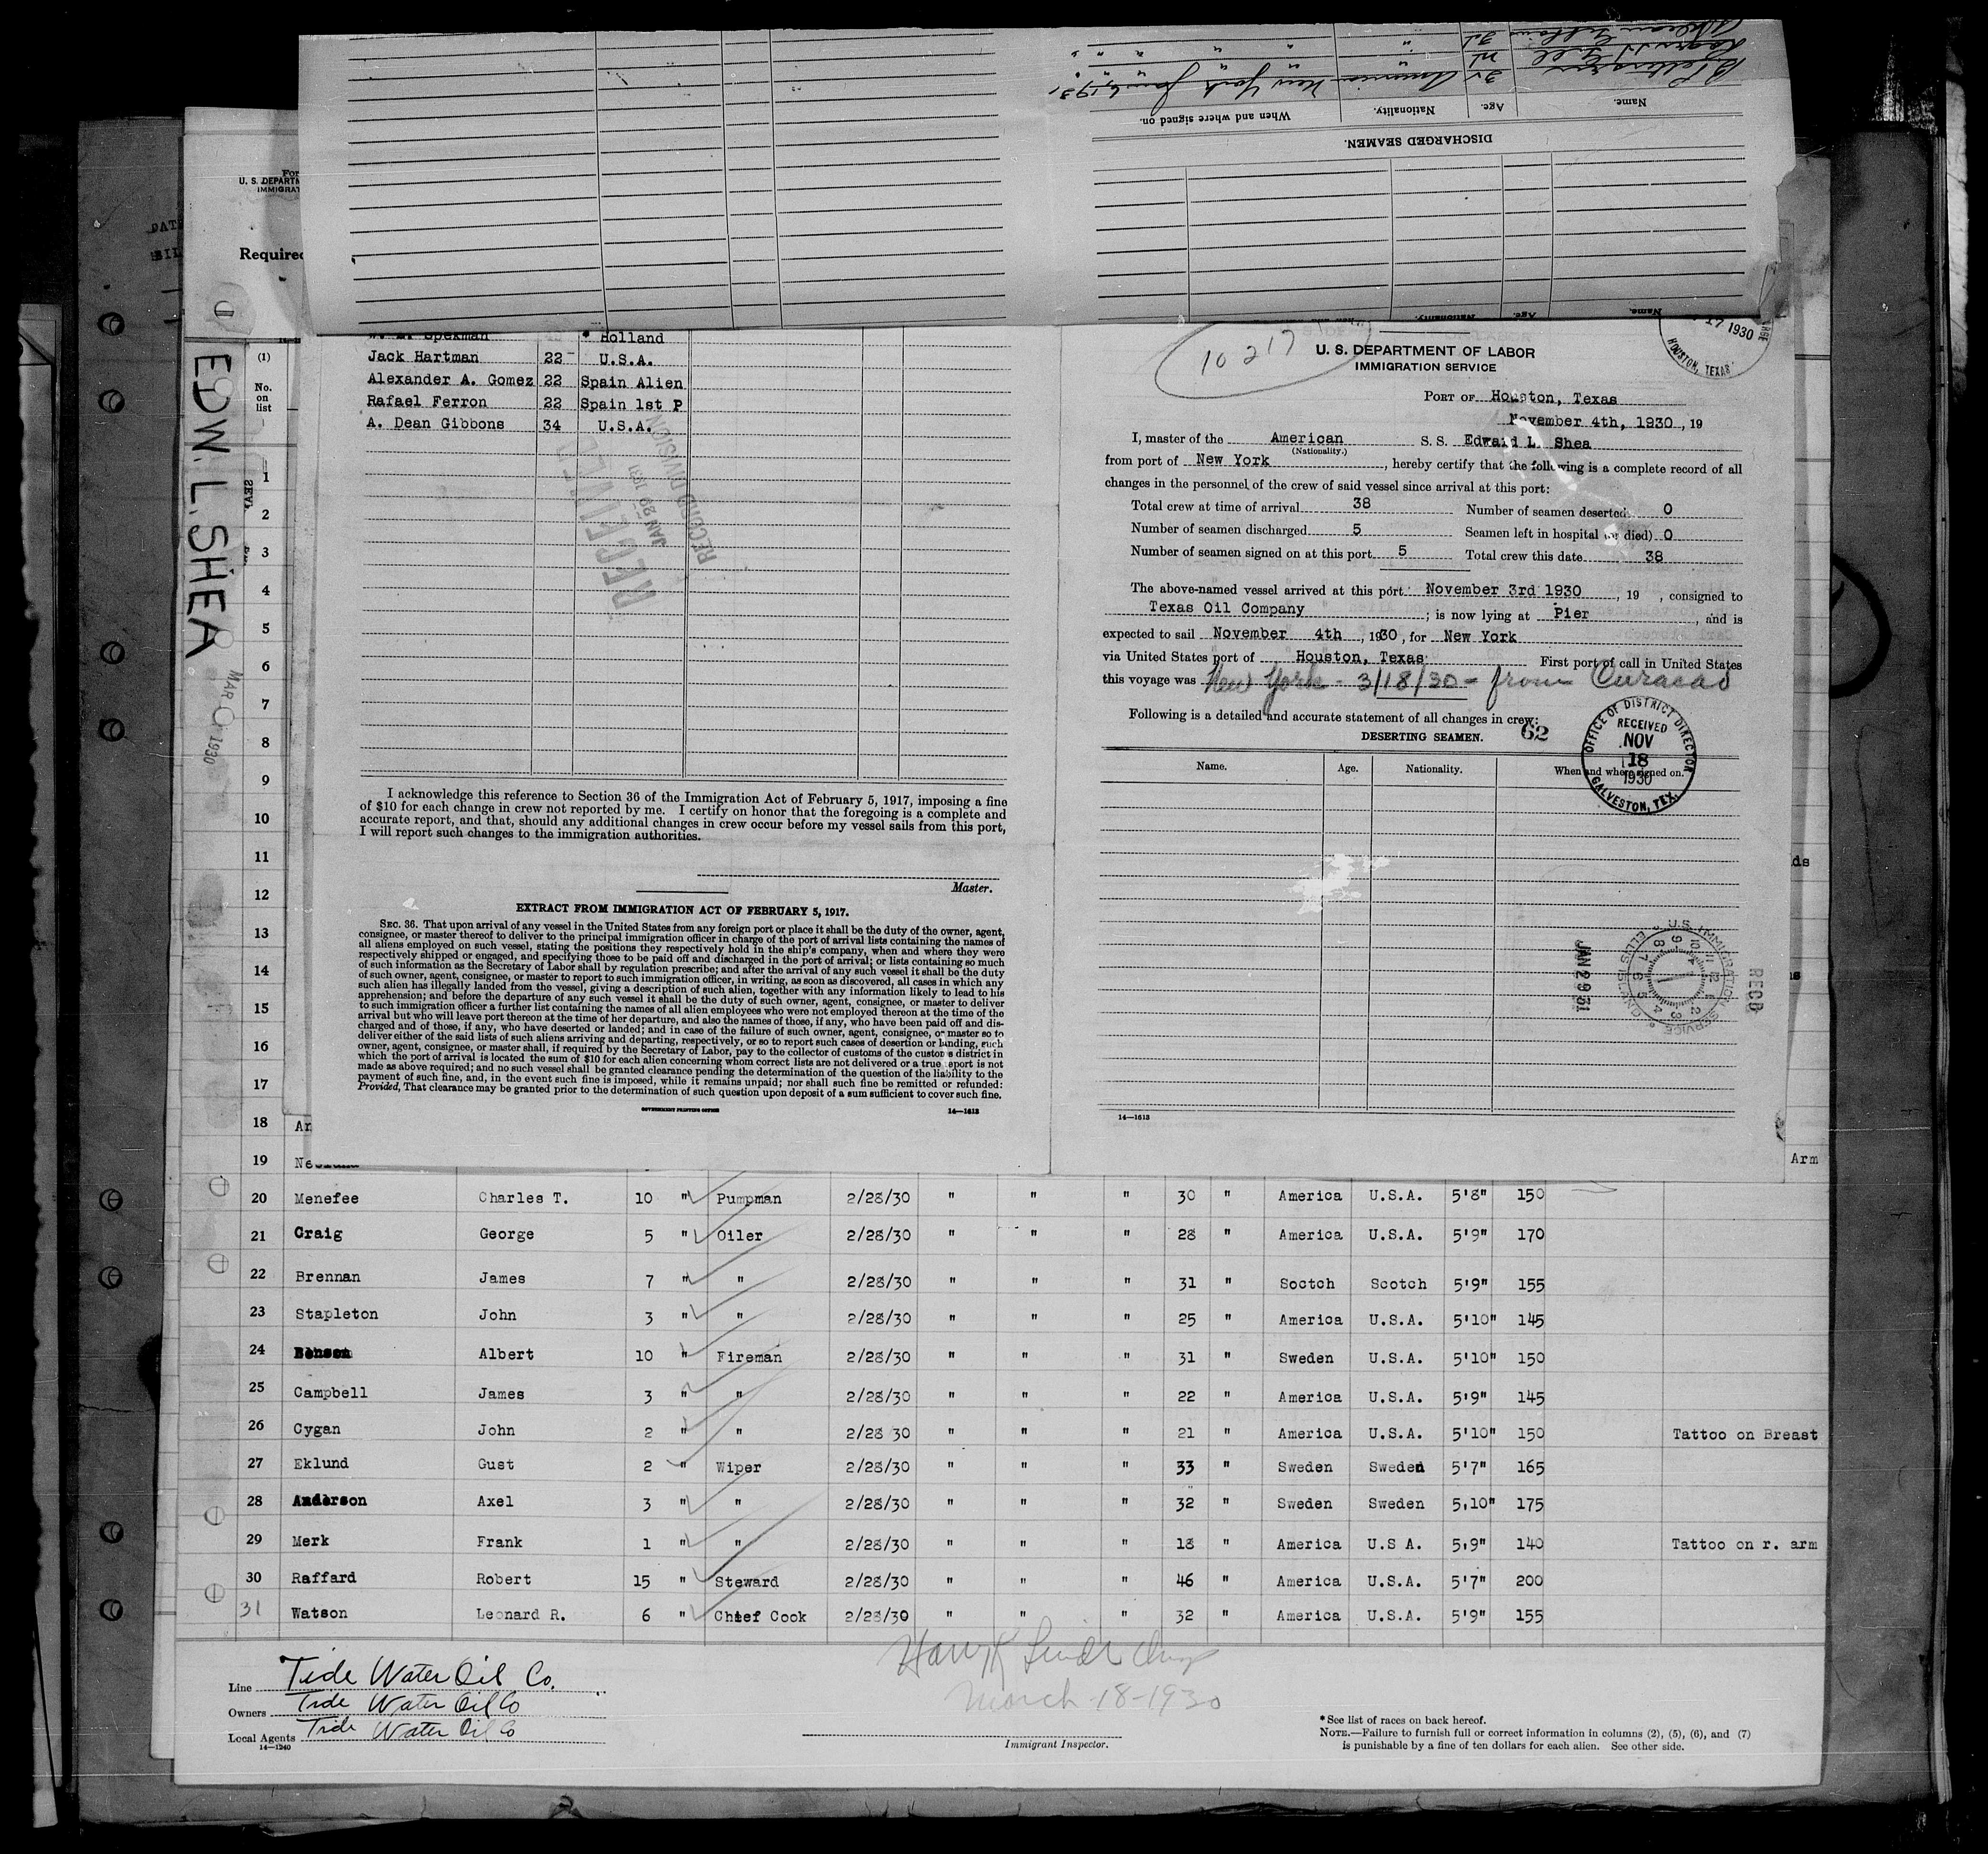 U. S. DEPARTM
IMMIGRAT
Required
EDW. L. SHEA
MAR
1930
DISCHARGED SEAMEN.
Name.
Age.
Nationality.
When and where signed on.
New York
Spekman Holland
Jack Hartman 22 U.S.A.
Alexander A. Gomez 22 Spain Alien
Rafael Ferron 22 Spain 1st P
A. Dean Gibbons 34 U.S.A.
RECEIVED
JAN 29 1931
RECORD DIVISION
I acknowledge this reference to Section 36 of the Immigration Act of February 5, 1917, imposing a fine
of $10 for each change in crew not reported by me. I certify on honor that the foregoing is a complete and
accurate report, and that, should any additional changes in crew occur before my vessel sails from this port,
I will report such changes to the immigration authorities.
Master.
EXTRACT FROM IMMIGRATION ACT OF FEBRUARY 5, 1917.
SEC. 36. That upon arrival of any vessel in the United States from any foreign port or place it shall be the duty of the owner, agent,
consignee, or master thereof to deliver to the principal immigration officer in charge of the port of arrival lists containing the names of
all aliens employed on such vessel, stating the positions they respectively hold in the ship's company, when and where they were
respectively shipped or engaged, and specifying those to be paid off and discharged in the port of arrival; or lists containing so much
of such information as the Secretary of Labor shall by regulation prescribe; and after the arrival of any such vessel it shall be the duty
of such owner, agent, consignee, or master to report to such immigration officer, in writing, as soon as discovered, all cases in which any
such alien has illegally landed from the vessel, giving a description of such alien, together with any information likely to lead to his
apprehension; and before the departure of any such vessel it shall be the duty of such owner, agent, consignee, or master to deliver
to such immigration officer a further list containing the names of all alien employees who were not employed thereon at the time of the
arrival but who will leave port thereon at the time of her departure, and also the names of those, if any, who have been paid off and dis-
charged and of those, if any, who have deserted or landed; and in case of the failure of such owner, agent, consignee, or master so to
deliver either of the said lists of such aliens arriving and departing, respectively, or so to report such cases of desertion or landing, such
owner, agent, consignee, or master shall, if required by the Secretary of Labor, pay to the collector of customs of the customs district in
which the port of arrival is located the sum of $10 for each alien concerning whom correct lists are not delivered or a true report is not
made as above required; and no such vessel shall be granted clearance pending the determination of the question of the liability to the
payment of such fine, and, in the event such fine is imposed, while it remains unpaid; nor shall such fine be remitted or refunded:
Provided, That clearance may be granted prior to the determination of such question upon deposit of a sum sufficient to cover such fine.
GOVERNMENT PRINTING OFFICE 14—1613
10 217
17 1930
HOUSTON, TEXAS
U. S. DEPARTMENT OF LABOR
IMMIGRATION SERVICE
PORT OF Houston, Texas
November 4th, 1930, 19
I, master of the American S. S. Edward L. Shea
(Nationality.)
from port of New York, hereby certify that the following is a complete record of all
changes in the personnel of the crew of said vessel since arrival at this port:
Total crew at time of arrival 38 Number of seamen deserted 0
Number of seamen discharged 5 Seamen left in hospital (or died) 0
Number of seamen signed on at this port 5 Total crew this date 38
The above-named vessel arrived at this port November 3rd 1930, 19 , consigned to
Texas Oil Company; is now lying at Pier, and is
expected to sail November 4th, 1930, for New York
via United States port of Houston, Texas First port of call in United States
this voyage was New York - 3/18/30 - from Curacao
Following is a detailed and accurate statement of all changes in crew:
DESERTING SEAMEN. 62
Name. Age. Nationality. When and where signed on.
OFFICE OF DISTRICT DIRECTOR
RECEIVED
NOV
18
1930
GALVESTON, TEX.
U.S. IMMIGRATION SERVICE
ELLIS ISLAND
JAN 29 1931
RECD
14—1613
(1)
No.
on
list
1
2
3
4
5
6
7
8
9
10
11
12
13
14
15
16
17
18 An
19 Arm
20 Menefee Charles T. 10 " Pumpman 2/28/30 " " " 30 " America U.S.A. 5'8" 150
21 Craig George 5 " Oiler 2/28/30 " " " 28 " America U.S.A. 5'9" 170
22 Brennan James 7 " " 2/28/30 " " " 31 " Soctch Scotch 5'9" 155
23 Stapleton John 3 " " 2/28/30 " " " 25 " America U.S.A. 5'10" 145
24 Benson Albert 10 " Fireman 2/28/30 " " " 31 " Sweden U.S.A. 5'10" 150
25 Campbell James 3 " " 2/28/30 " " " 22 " America U.S.A. 5'9" 145
26 Cygan John 2 " " 2/28 30 " " " 21 " America U.S.A. 5'10" 150 Tattoo on Breast
27 Eklund Gust 2 " Wiper 2/28/30 " " " 33 " Sweden Sweden 5'7" 165
28 Anderson Axel 3 " " 2/28/30 " " " 32 " Sweden Sweden 5,10" 175
29 Merk Frank 1 " " 2/28/30 " " " 18 " America U.S A. 5,9" 140 Tattoo on r. arm
30 Raffard Robert 15 " Steward 2/28/30 " " " 46 " America U.S.A. 5'7" 200
31 Watson Leonard R. 6 " Chief Cook 2/28/30 " " " 32 " America U.S.A. 5'9" 155
Line Tide Water Oil Co.
Owners Tide Water Oil Co
Local Agents Tide Water Oil Co
14—1240
March 18-1930
Immigrant Inspector.
*See list of races on back hereof.
NOTE.—Failure to furnish full or correct information in columns (2), (5), (6), and (7)
is punishable by a fine of ten dollars for each alien. See other side.